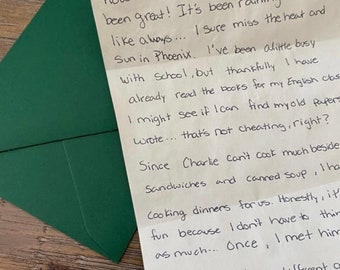 been great! It's been raining
like always... I sure miss the heat and
Sun in Phoenix. I've been a little busy
with school, but thankfully I have
already read the books for my English
I might see if I can find my old papers
wrote... that's not cheating, right?
Since Charlie can't cook much
Sandwiches and canned soup, I
Cooking dinners for us. Honestly,
fun because I don't have to think
as much... Once, I met him
different